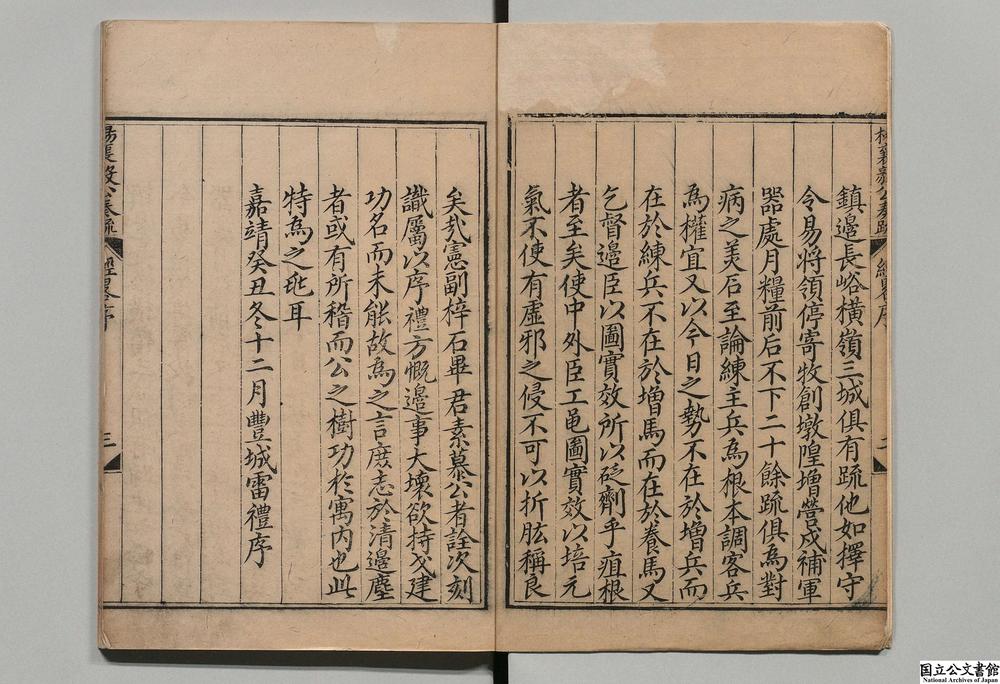 鎮邊長峪橫嶺三城俱有疏他如擇守
令易將領停寄牧創墩隍增營戍補軍
器處月糧前后不下二十餘疏俱為對
病之美石至論練主兵為根本調客兵
為權宜又以今日之勢不在於增兵而
在於練兵不在於增馬而在於養馬又
乞督邊臣以圖實效所以砭劑乎疽根
者至矣使中外臣工黽圖實效以培元
氣不使有虛邪之侵不可以折肱稱良
矣㢤憲副梓石畢君素慕公者詮次刻
識屬以序禮方慨邊事大壞欲持戈建
功名而未能故為之言庶志於清邊塵
者或有所稽而公之樹功於寓內也此
特為之玭耳
嘉靖癸丑冬十二月豐城雷禮序
楊襄毅公奏疏
經畧序
三
楊襄毅公奏疏
經畧序
国立公文書館
National Archives of Japan